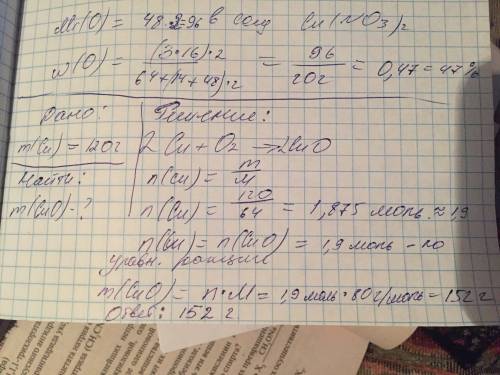 Mr(O) = 48·2=96 в соед Cu(NO3)2
w(O) = (3·16)·2 / 64+(14+48)·2 = 96 / 202 = 0,47 = 47%
Дано:
m(Cu) = 120г
Найти:
m(CuO) - ?
Решение:
2Cu + O2 → 2CuO
n(Cu) = m/M
n(Cu) = 120/64 = 1,875 моль ≈ 1,9
n(Cu) = n(CuO) = 1,9 моль - по
уравн. реакции
m(CuO) = n·M = 1,9 моль · 80 г/моль = 152 г
Ответ: 152 г